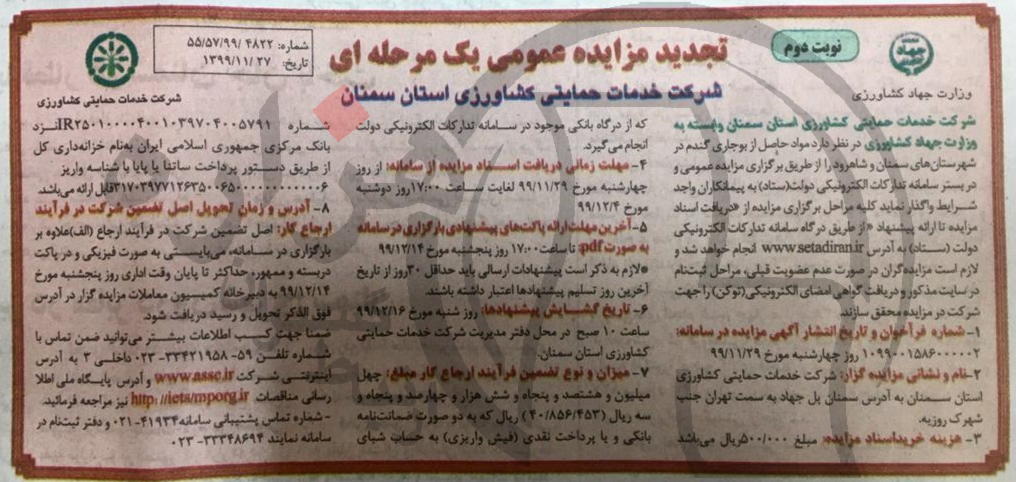 نوبت دوم
تجدید مزایده عمومی یک مرحله ای
شرکت خدمات حمایتی کشاورزی استان سمنان
شماره: ۵۵/۵۷/۹۹/ ۴۸۲۲
تاریخ: ۱۳۹۹/۱۱/۲۷
وزارت جهاد کشاورزی
شرکت خدمات حمایتی کشاورزی
شرکت خدمات حمایتی کشاورزی استان سمنان وابسته به
وزارت جهاد کشاورزی در نظر دارد مواد حاصل از بوجاری گندم در
شهرستان‌های سمنان و شاهرود را از طریق برگزاری مزایده عمومی و
در بستر سامانه تدارکات الکترونیکی دولت(ستاد) به پیمانکاران واجد
شرایط واگذار نماید کلیه مراحل برگزاری مزایده از «دریافت اسناد
مزایده تا ارائه پیشنهاد «از طریق درگاه سامانه تدارکات الکترونیکی
دولت (ستاد) به آدرس www.setadiran.ir انجام خواهد شد و
لازم است مزایده‌گران در صورت عدم عضویت قبلی، مراحل ثبت‌نام
در سایت مذکور و دریافت گواهی امضای الکترونیکی(توکن) را جهت
شرکت در مزایده محقق سازند.
۱- شماره فرآخوان و تاریخ انتشار آگهی مزایده در سامانه:
۱۰۹۹۰۰۱۵۸۶۰۰۰۰۰۲ روز چهارشنبه مورخ ۹۹/۱۱/۲۹
۲-نام و نشانی مزایده گزار: شرکت خدمات حمایتی کشاورزی
استان سمنان به آدرس سمنان پل جهاد به سمت تهران جنب
شهرک روزیه.
۳- هزینه خریداسناد مزایده: مبلغ ۵۰۰/۰۰۰ریال می‌باشد
که از درگاه بانکی موجود در سامانه تدارکات الکترونیکی دولت
انجام می‌گیرد.
۴- مهلت زمانی دریافت اسناد مزایده از سامانه: از روز
چهارشنبه مورخ ۹۹/۱۱/۲۹ لغایت ساعت ۱۷:۰۰ روز دوشنبه
مورخ ۹۹/۱۲/۴
۵- آخرین مهلت ارائه پاکت‌های پیشنهادی بارگزاری در سامانه
به صورت pdf: تا ساعت ۱۷:۰۰ روز پنجشنبه مورخ ۹۹/۱۲/۱۴
*لازم به ذکر است پیشنهادات ارسالی باید حداقل ۳۰روز از تاریخ
آخرین روز تسلیم پیشنهادها اعتبار داشته باشند.
۶- تاریخ گشایش پیشنهادها: روز شنبه مورخ ۹۹/۱۲/۱۶
ساعت ۱۰ صبح در محل دفتر مدیریت شرکت خدمات حمایتی
کشاورزی استان سمنان.
۷- میزان و نوع تضمین فرآیند ارجاع کار مبلغ: چهل
میلیون و هشتصد و پنجاه و شش هزار و چهارصد و پنجاه و
سه ریال (۴۰/۸۵۶/۴۵۳) ریال که به دو صورت ضمانت‌نامه
بانکی و یا پرداخت نقدی (فیش واریزی) به حساب شبای
شماره IR۲۵۰۱۰۰۰۰۴۰۰۱۰۳۹۷۰۴۰۰۵۷۹۱نزد
بانک مرکزی جمهوری اسلامی ایران به‌نام خزانه‌داری کل
از طریق دستور پرداخت ساتفا یا پایا با شناسه واریز
قابل ارائه می‌باشد.
۸- آدرس و زمان تحویل اصل تضمین شرکت در فرآیند
ارجاع کار: اصل تضمین شرکت در فرآیند ارجاع (الف)علاوه بر
بارگزاری در سامانه، می‌بایستی به صورت فیزیکی و در پاکت
دربسته و ممهور، حداکثر تا پایان وقت اداری روز پنجشنبه مورخ
۹۹/۱۲/۱۴ به دبیرخانه کمیسیون معاملات مزایده گزار در آدرس
فوق الذکر تحویل و رسید دریافت شود.
ضمنا جهت کسب اطلاعات بیشتر می‌توانید ضمن تماس با
شماره تلفن ۵۹- ۳۳۴۲۱۹۵۸-۰۲۳ داخلی ۳ به آدرس
اینترنتی شرکت www.assc.ir و آدرس پایگاه ملی اطلا
رسانی مناقصات http://iets/mporg.ir نیز مراجعه فرمائید.
- شماره تماس پشتیبانی سامانه۴۱۹۳۴-۰۲۱ و دفتر ثبت‌نام در
سامانه نمایند ۳۳۳۴۸۶۹۴-۰۲۳